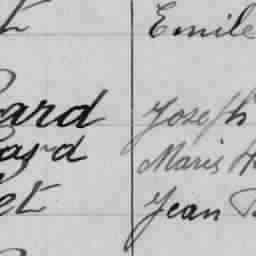 Emile
ard Joseph
ard Maris
et Jean